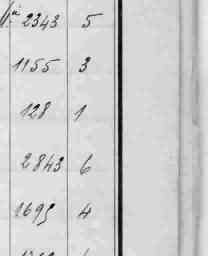 2343 5
1155 3
128 1
2843 6
1695 4